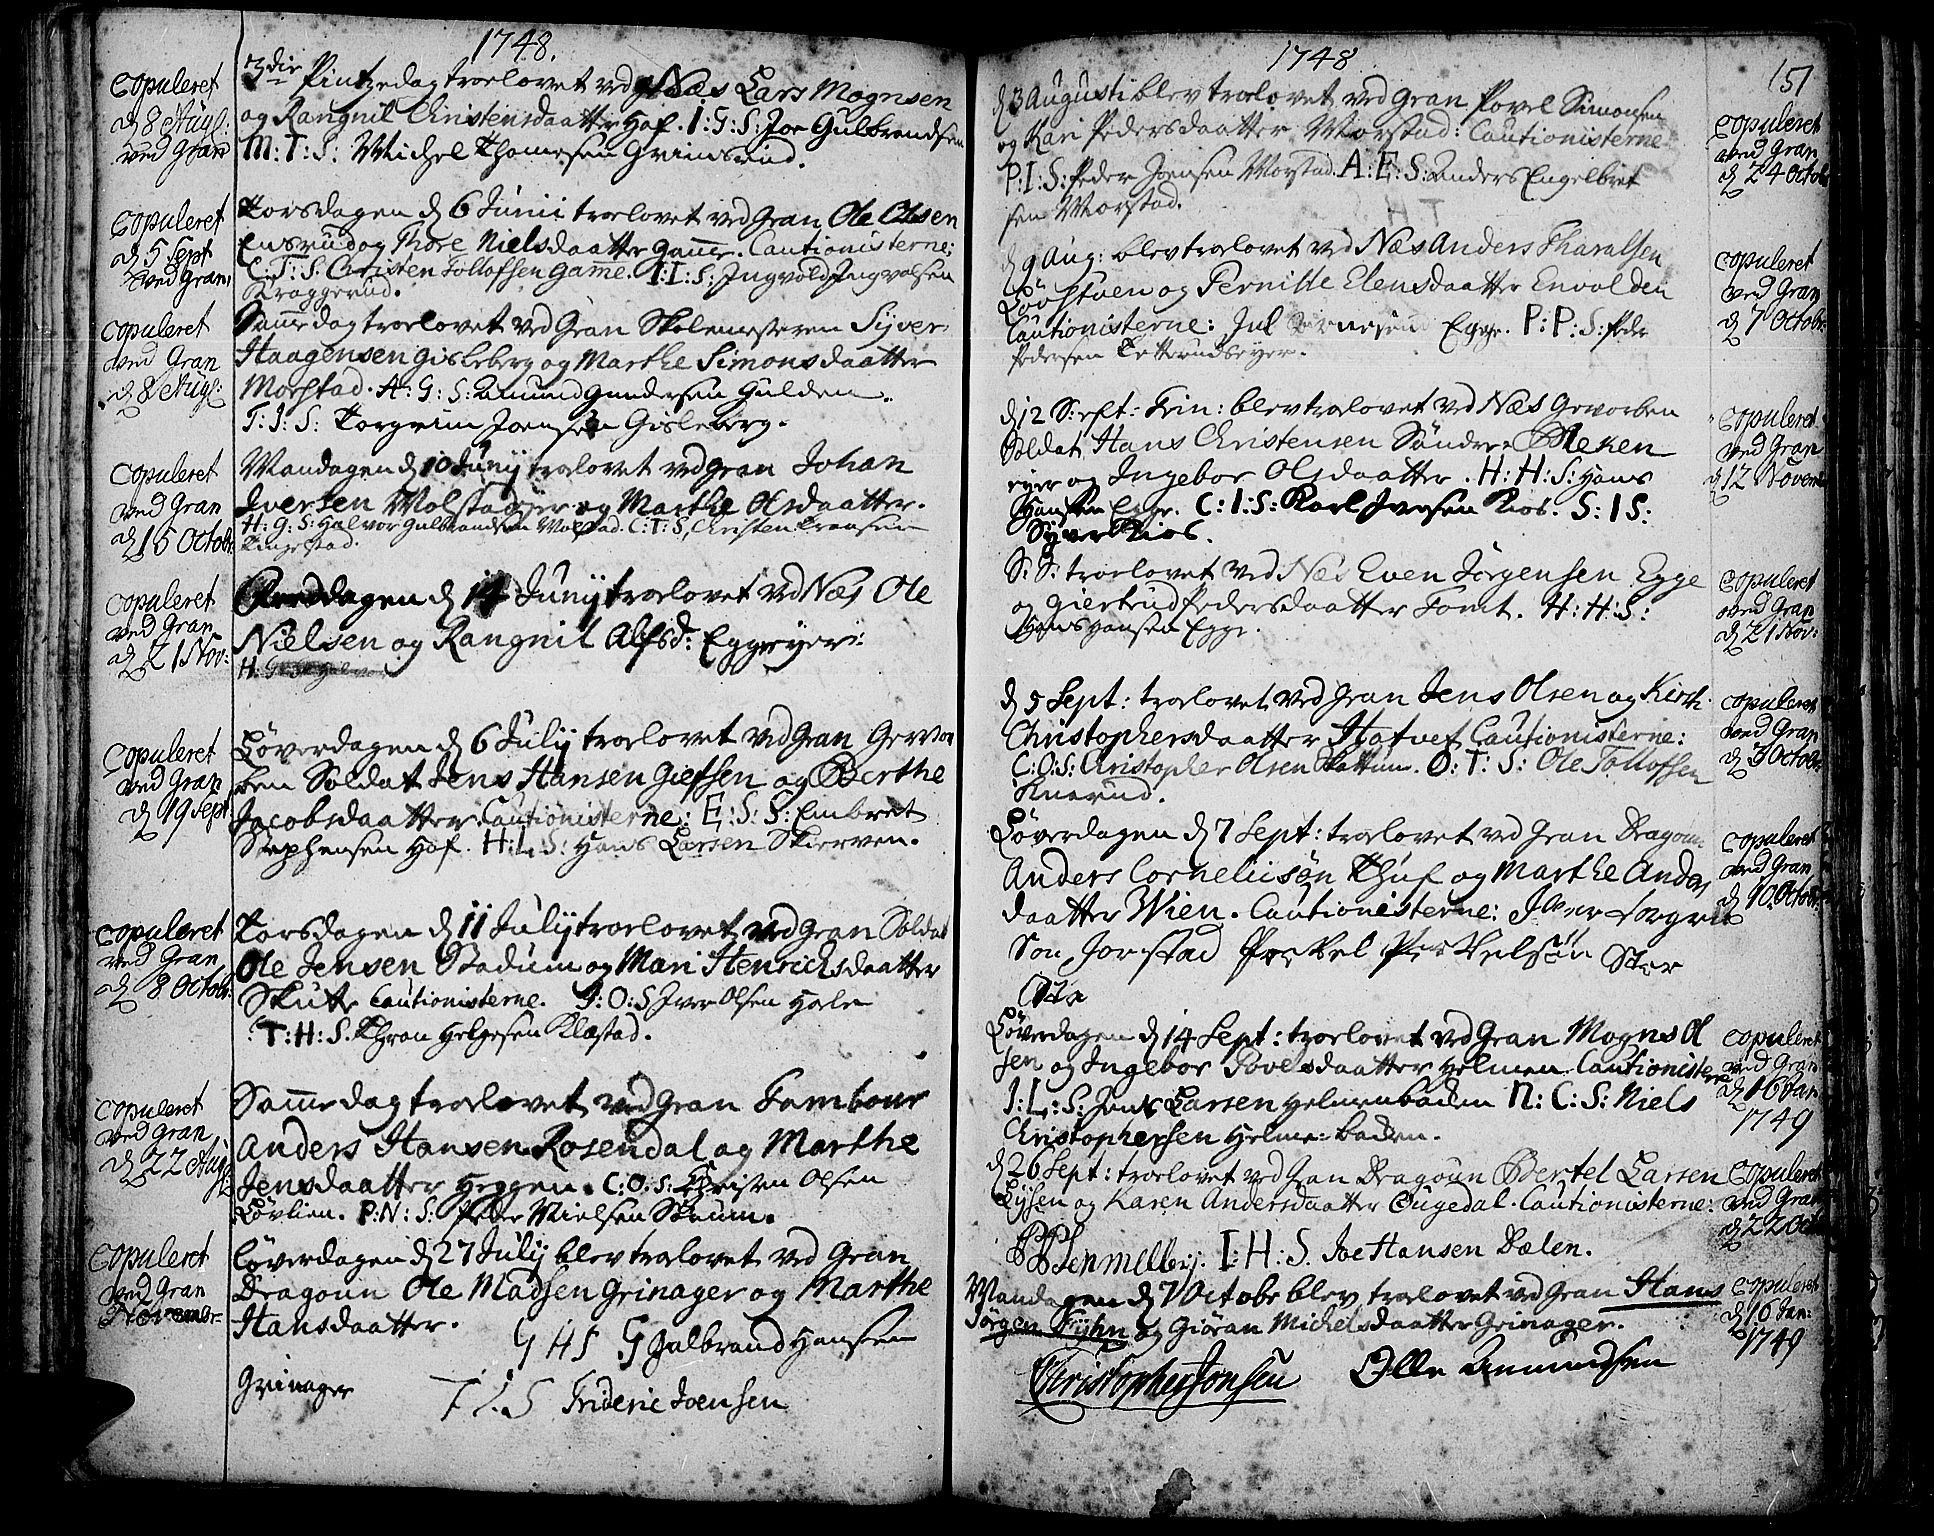 1748.
Copuleret
d 8 Augl:
ved Gran
3die Pintzedag troelovet ved Næs Lars Mognsen
og Rangnil Christensdaatter Hof. I: G: S: Joe Gulbrandsen
M: T: S: Michel Thomesen Grimsrud.
Copuleret
d 5 Sept
ved Gran
Torsdagen d 6 Junii troelovet ved Gran Ole Olsen
Ensrud og Thore Nielsdaatter Game. Cautionisterne:
C: T: S: Christen Tollofsen Game. I: I: S: Ingvold Ingvolsen
Kraggerud.
Copuleret
ved Gran
d 8 Augl:
Samedag troelovet ved Gran Skolemesteren Syver
Haagensen Gisleberg og Marthe Simonsdaatter
Morstad. A: G: S: Amund Gundersen Gulden.
T: I: S: Torgrim Joensen Gisleberg.
Copuleret
ved Gran
d 15 Octobr:
Mandagen d 10 Junij troelovet ved Gran Johan
Iversen Molstadejer og Marthe Olsdaatter.
H: G: S: Halvor Gulbrandsen Molstad. C: T: S, Christen
Tingelstad.
Copuleret
ved Gran
d 21 Nov:
dagen d 14 Junij troelovet ved Næs Ole
Nielsen og Rangnil Alfsd: Eggeejer:
H:
Copuleret
ved Gran
d 19 Sept
Løverdagen d 6 Julij troelovet ved Gran Gevor
ben Soldat Jens Hansen Giefsen og Berthe
Jacobsdaatter. Cautionisterne: E: S: S: Embret
Stephensen Hof. H: L: S: Hans Larsen Skierven.
Copuleret
ved Gran
d 8 Octobr:
Torsdagen d 11 Julij troelovet ved Gran Soldat
Ole Jensen Stadum og Mari Henrichsdaatter
Skutte Cautionisterne. I: O: S Iver Olsen Hole
T: H: S. Thron Helgesen Klæstad.
Copuleret
ved Gran
d 22 Augl:
Samedag troelovet ved Gran Tambour
Anders Hansen Rosendal og Marthe
Jensdaatter Heggen. C: O: S: Christen Olsen
Løvlien. P: N: S: Peder Nielsen Skrum.
Copuleret
ved Gran
Novembr
Løverdagen d 27 Julij blev troelovet ved Gran
Dragoun Ole Madsen Grinager og Marthe
Hansdaatter.
G H S Gulbrand Hansen
Grinager
F I S Frideric Joensen
1748
151
d 3 Augusti blev troelovet ved Gran Povel Simonsen
og Kari Pedersdaatter Morstad: Cautionisterne
P: I: S: Peder Joensen Morstad. A: E: S: Anders Engelbret
sen Morstad.
Copuleret
ved Gran
d 24 Octob
d 9 Aug: blev troelovet ved Næs Anders Tharalsen
Løvstuen og Pernille Elensdaatter Envolden
Cautionisterne: Jul Egge. P: P: S: Peder
Pedersen
Copuleret
ved Gran
d 7 Octobr:
d 12 S: eft: Trin: blev troelovet ved Næs Gevorben
Soldat Hans Christensen Søndre Bleken
ejer og Ingebor Olsdaatter. H: H: S: Hans
Hansen Egge. C: I: S: Karl Iversen Kios. S: I S:
Syver Kios.
Copuleret
ved Gran
d 12 Novem
S: D: troelovet ved Næs Even Jørgensen Egge
og Giertrud Pedersdaatter Tomt. H: H: S:
Hans Hansen Egge.
Copuleret
ved Gran
d 21 Nov:
d 5 Sept: troelovet ved Gran Jens Olsen og Kirst:
Christophersdaatter Hatvet Cautionisterne:
C: O: S: Christopher Olsen Skattum. O: T: S: Ole Tollofsen
Knærud.
Copuleret
ved Gran
d 3 Octobr:
Løverdagen d 7 Sept: troelovet ved Gran Dragoun
Anders Corneliusøn Thuf og Marthe Anders
daatter Wien. Cautionisterne: Iver Torgri
Son Jorstad
Copuleret
ved Gran
d 10 Octobr:
Løverdagen d 14 Sept: troelovet ved Gran Mogns Ol
sen og Ingebor Povelsdaatter Helmen Cautionisterne
I: L: S: Jens Larsen Helmenbaden N: C: S: Niels
Christophersen Helme: baden.
Copuleret
ved Gran
d 16 Jan
1749
d 26 Sept: troelovet ved Gran Dragoun Bertel Larsen
Lysen og Karen Andersdaatter Ougedal. Cautionisterne:
I: H: S. Joe Hansen Dælen.
Copuleret
ved Gran
d 22 Octo
Mandagen d 7 Octobr blev troelovet ved Gran Hans
Jørgen Fyhn og Giøran Michelsdaatter Grinager.
Christopher Jonsen Olle Amundsen
Copuleret
d 16 Jan:
1749